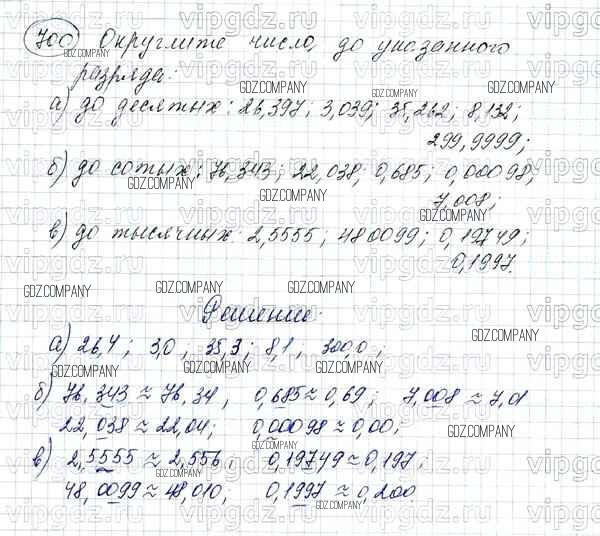 700 Округлите число, до указанного
разряда:
а) до десятых: 26,397; 3,039; 35,262; 8,132;
299,9999;
б) до сотых: 76,343; 22,038, 0,685; 0,00098;
7,008;
в) до тысячных: 2,5555; 48 0099; 0,19749;
0,1997.
Решение:
а) 26,4; 3,0; 35,3; 8,1, 300,0;
б) 76,343 ≈ 76,34, 0,685 ≈ 0,69; 7,008 ≈ 7,01
22,038 ≈ 22,04; 0,00098 ≈ 0,00;
в) 2,5555 ≈ 2,556, 0,19749 ≈ 0,197;
48,0099 ≈ 48,010, 0,1997 ≈ 0,200